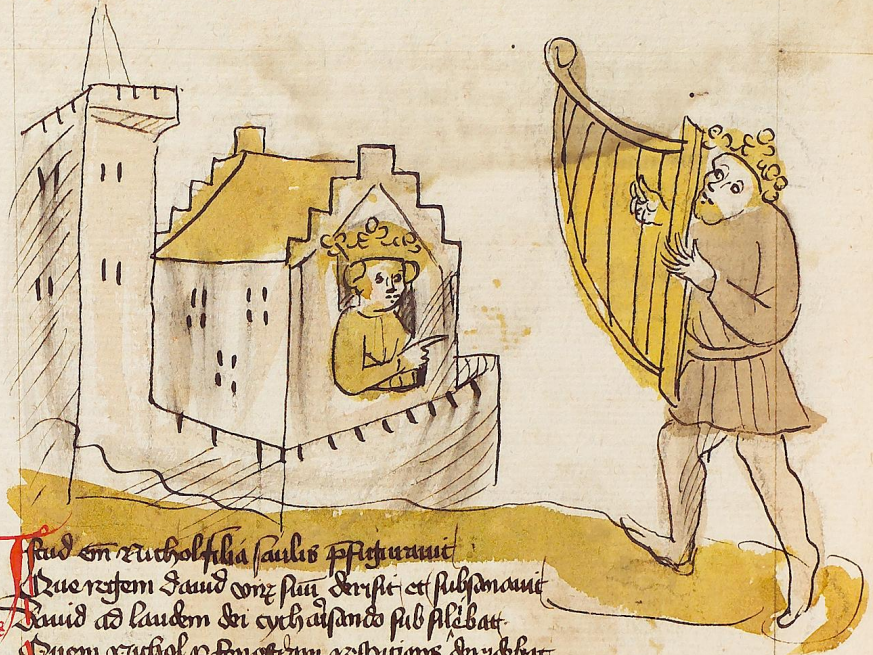 Istud em̄ Nichol filia saulis p̄figurauit
Que regem dauid virū suū derisit et subsanauit
Dauid ad laudem dei cytharisando subsilebat
Quem Nichol